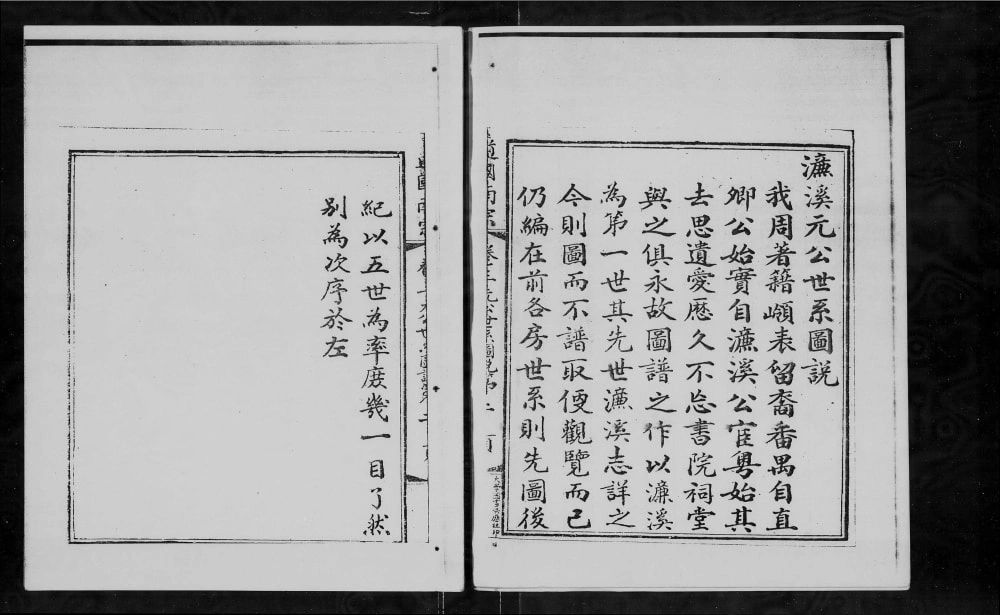 濂溪元公世系圖說
我周著籍嶺表留裔番禺自直
卿公始實自濂溪公宦粤始其
去思遺愛歷久不忘書院祠堂
與之俱永故圖譜之作以濂溪
為第一世其先世濂溪志詳之
今則圖而不譜取便觀覽而已
仍編在前各房世系則先圖後
紀以五世為率庻幾一目了然
別為次序於左